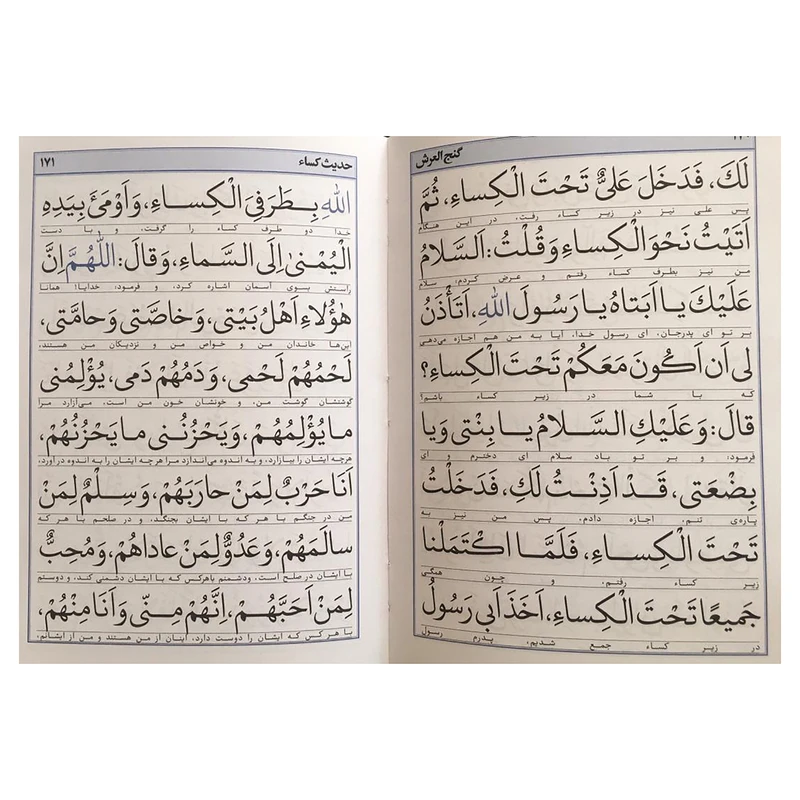 گنج العرش
لَكَ، فَدَخَلَ عَلِیٌّ تَحْتَ الْكِساءِ، ثُمَّ
پس علی نیز در زیر کساء رفت، در این هنگام
اَتَيْتُ نَحْوَ الْكِساءِ وَ قُلْتُ: اَلسَّلامُ
من نیز بطرف کساء رفتم و عرض کردم، سلام
عَلَيْكَ يا اَبَتاهُ يا رَسُولَ اللهِ، اَتَأْذَنُ
بر تو ای پدرجان، ای رسول خدا، آیا به من هم اجازه می‌دهی
لی اَن اَكُونَ مَعَكُمْ تَحْتَ الْكِساءِ؟
که با شما در زیر کساء باشم؟
قالَ: وَ عَلَيْكِ السَّلامُ يا بِنْتی وَ يا
فرمود: و بر تو باد سلام ای دخترم و ای
بِضْعَتی، قَدْ اَذِنْتُ لَكِ، فَدَخَلْتُ
پاره‌ی تنم، اجازه دادم، پس من نیز به
تَحْتَ الْكِساءِ، فَلَمَّا اكْتَمَلْنا
زیر کساء رفتم، و چون همگی
جَميعًا تَحْتَ الْكِساءِ، اَخَذَ اَبی رَسُولُ
در زیر کساء جمع شدیم، پدرم رسول
حدیث کساء ۱۷۱
اللهِ بِطَرَفَیِ الْكِساءِ، وَ اَوْمَئَ بِيَدِهِ
خدا دو طرف کساء را گرفت، و با دست
الْيُمْنیٰ اِلَی السَّماءِ، وَ قالَ: اَللّٰهُمَّ اِنَّ
راستش بسوی آسمان اشاره کرد، و فرمود: خدایا! همانا
هٰؤُلاءِ اَهْلُ بَيْتی، وَ خاصَّتی وَ حامَّتی،
این‌ها خاندان من و خواص من و نزدیکان من هستند،
لَحْمُهُمْ لَحْمی، وَ دَمُهُمْ دَمی، يُؤْلِمُنی
گوشتشان گوشت من، و خونشان خون من است، می‌آزارد مرا
ما يُؤْلِمُهُمْ، وَ يَحْزُنُنی ما يَحْزُنُهُمْ،
هرچه ایشان را بیازارد، و به اندوه می‌اندازد مرا هرچه ایشان را به اندوه درآورد،
اَنَا حَرْبٌ لِمَنْ حارَبَهُمْ، وَ سِلْمٌ لِمَنْ
من در جنگم با هر که با ایشان بجنگد، و در صلحم با هر که
سالَمَهُمْ، وَ عَدُوٌّ لِمَنْ عاداهُمْ، وَ مُحِبٌّ
با ایشان در صلح است، ودشمنم باهرکس که با ایشان دشمنی کند، و دوستم
لِمَنْ اَحَبَّهُمْ، اِنَّهُمْ مِنّی وَ اَنَا مِنْهُمْ،
با هر کس که ایشان را دوست دارد، اینان از من هستند و من از ایشانم،